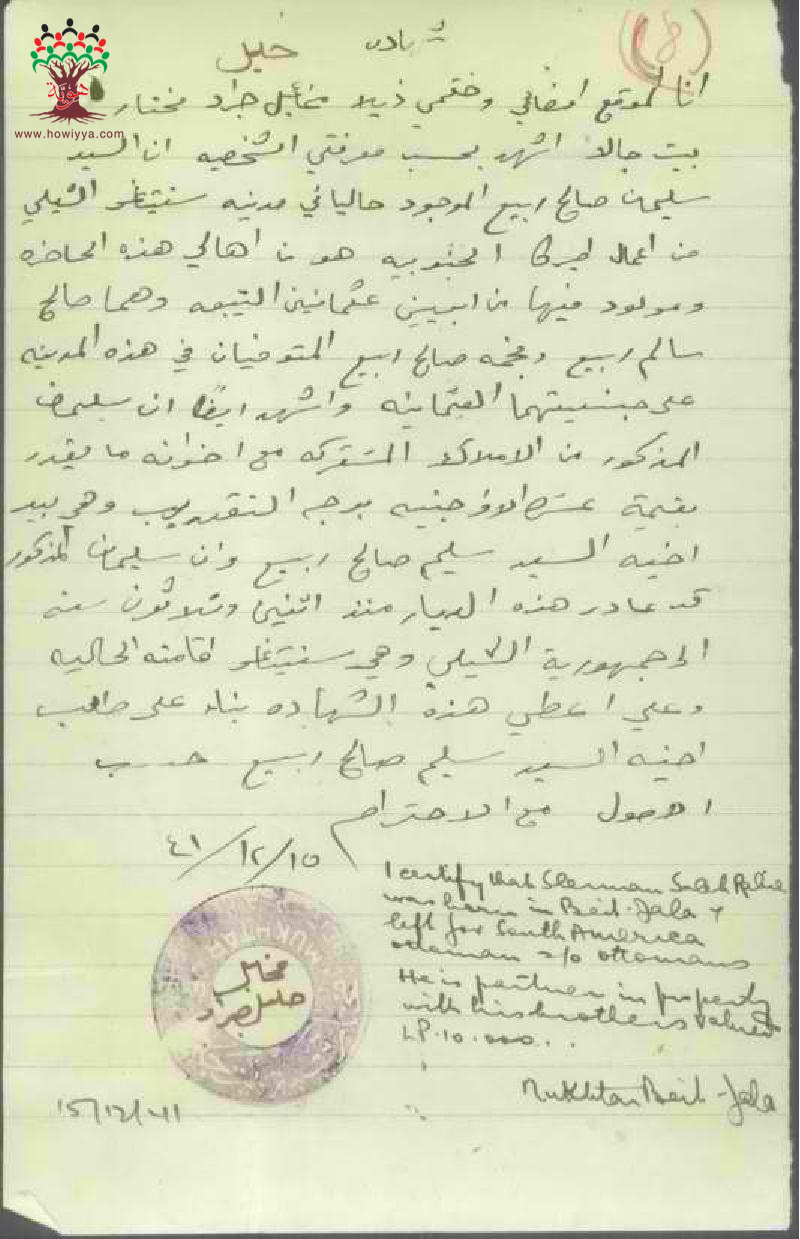 (8)
شهاده
خليل
هوية
www.howiyya.com
انا الموقع امضائي وختمي ذيلا مخائيل جراد مختار
بيت جالا اشهد بحسب معرفتي الشخصيه ان السيد
سليمان صالح ربيع الموجود حاليا في مدينه سنتياغو التشيلي
من اعمال اميركا الجنوبيه هو من اهالي هذه الحاضره
ومولود فيها من ابويين عثمانيين التبعه وهما صالح
سالم ربيع ونجمه صالح ربيع المتوفيان في هذه المدينه
على جنسيتهما العثمانيه واشهد ايضا ان سليمان
المذكور من الاملاك المشتركه مع اخوانه ما يقدر
بقيمة عشرة الاف جنيه بوجه التقريب وهي بيد
اخيه السيد سليم صالح ربيع وان سليمان المذكور
قد غادر هذه الديار منذ اثنين وثلاثون سنه
الى جمهورية التشيلي وهي سنتياغو اقامته الحاليه
وعليه اعطي هذه الشهاده بناء على طلب
اخيه السيد سليم صالح ربيع حسب
الاصول مع الاحترام
٤١/١٢/١٥
I certify that Sleman Saleh Rabie
was born in Beit-Jala &
left for South America
ottoman s/o ottomans
He is partner in property
with his brothers valued
LP.10.000..
MUKHTAR
مخايل
خليل جراد
Mukhtar Beit-Jala
15/12/41